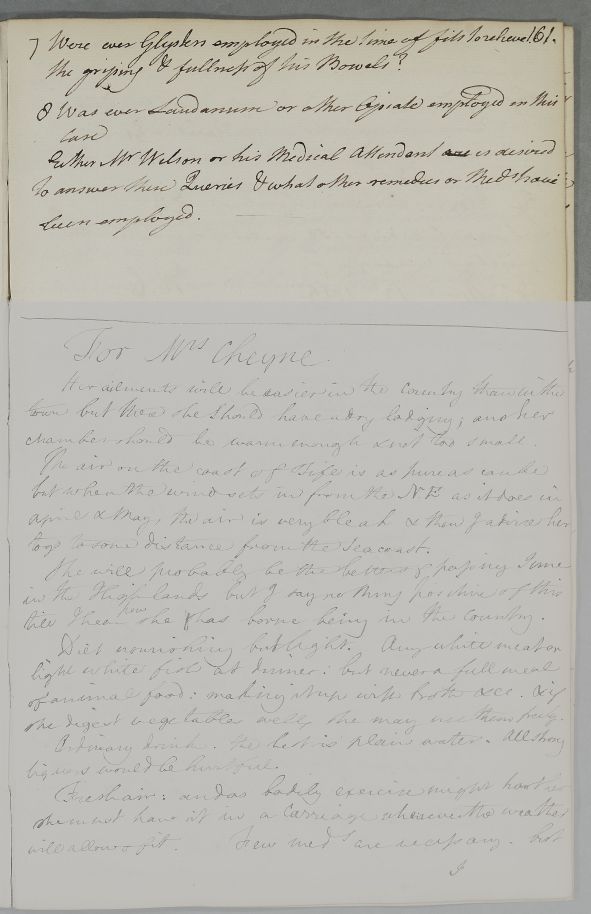 161.
7 Were ever Glysters employed in the time of fits to relieve
the griping & fullness of his Bowels?
8 Was ever Laudanum or other Opiate employed in this
Case
Either Mr Wilson or his Medical Attendant are is desired
to answer these Queries & what other remedies or Meds have
been employed.
For Mrs Cheyne.
Her ailments will be easier in the Country than in the
town but there she should have a dry lodging; and her
chamber should be warm enough & not too small.
The air on the coast of Fife is as pure as can be
but when the wind sets in from the NE as it does in
April & May, the air is very bleak & then I advise her
to go to some distance from the Seacoast.
She will probably be the better of passing Some
in the Highlands but I say nothing positive of this
till I hear how she has borne being in the Country.
Diet nourishing but light. Any white meat or
light white fish at dinner: but never a full meal
of animal food: making it up with broth &c. & if
she digest vegetables well, she may use them freely.
Ordinary drink. the best is plain water. All strong
liquors would be hurtful.
Fresh air: and as bodily exercise might hurt her
she must have it in a Carriage whenever the weather
will allow of it. Few meds are necessary. but
I